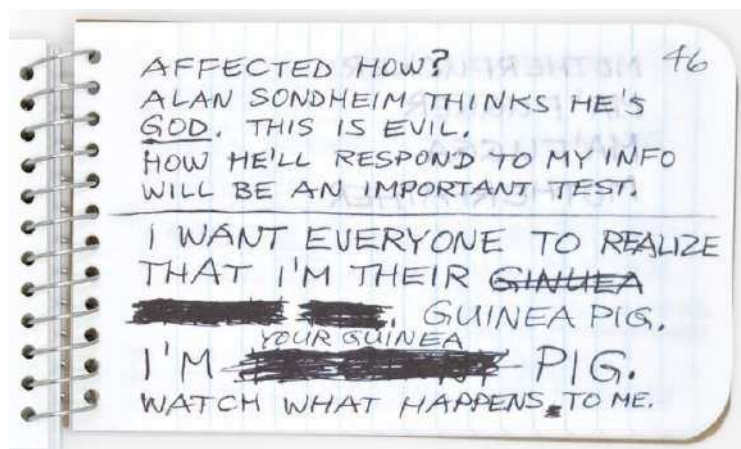 46
AFFECTED HOW?
ALAN SONDHEIM THINKS HE'S
GOD. THIS IS EVIL.
HOW HE'LL RESPOND TO MY INFO
WILL BE AN IMPORTANT TEST.
I WANT EVERYONE TO REALIZE
THAT I'M THEIR GINUEA
. GUINEA PIG.
YOUR GUINEA
I'M PIG.
WATCH WHAT HAPPENS TO ME.